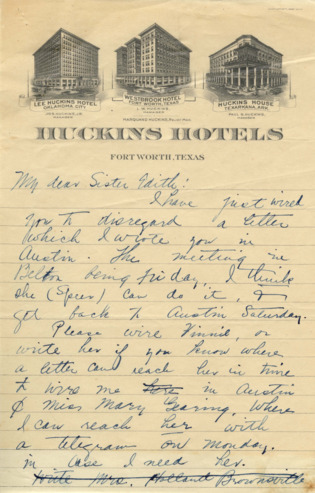 LEE HUCKINS HOTEL
OKLAHOMA CITY.
JOS. HUCKINS, JR.
MANAGER
WESTBROOK HOTEL
FORT WORTH, TEXAS
L. W. HUCKINS,
MANAGER
HUCKINS HOUSE
TEXARKANA, ARK.
PAUL HUCKINS,
MANAGER
HUCKINS HOTELS
FORT WORTH, TEXAS
My dear Sister Edith:
I have just wired
you to disregard a letter
which I wrote you in
Austin. The meeting in
Belton being friday, I think
she (Speer) can do it, &
get back to Austin Saturday.
Please wire Vinnie, or
write her if you know where
a letter can reach her in time
to wire me here in Austin
℅ Miss Mary Gearing, where
I can reach her with
a telegram on Monday.
in case I need her.
Write Mrs. Holland Brownsville